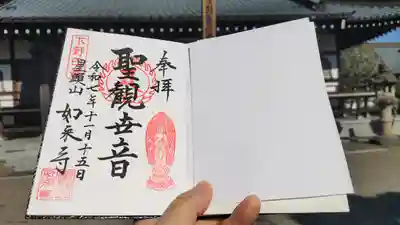 奉拝
聖観世音
令和七年十一月十五日
星顕山
如来寺